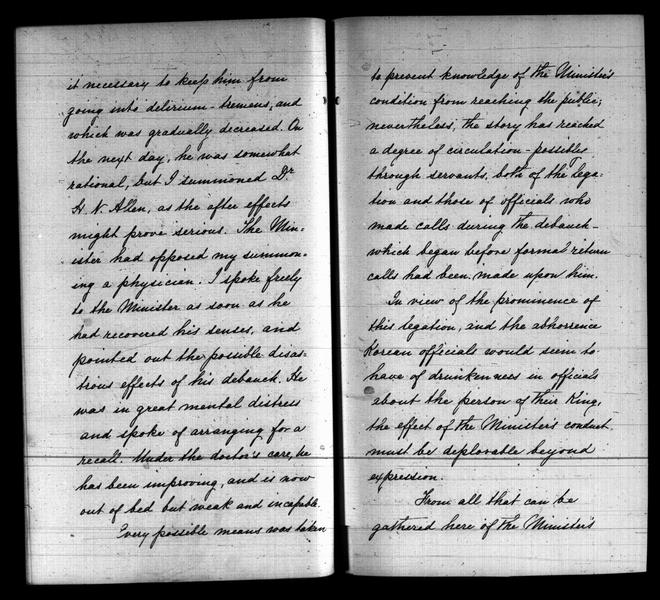 it necessary to keep him from
going into delirium-tremens, and
which was gradually decreased. On
the next day, he was somewhat
rational, but I summoned Dr
H. N. Allen, as the after effects
might prove serious. The Min-
ister had opposed my summon-
ing a physician. I spoke freely
to the Minister as soon as he
had recovered his senses, and
pointed out the possible disas-
trous effects of his debauch. He
was in great mental distress
and spoke of arranging for a
recall. Under the doctor's care, he
has been improving, and is now
out of bed but weak and incapable.
Every possible means was taken
to prevent knowledge of the Minister's
condition from reaching the public;
nevertheless, the story has reached
a degree of circulation - possibly
through servants, both of the lega-
tion and those of officials who
made calls during the debauch -
which began before formal return
calls had been made upon him.
In view of the prominence of
this legation, and the abhorrence
Korean officials would seem to
have of drunkenness in officials
about the person of their King,
the effect of the Minister's conduct
must be deplorable beyond
expression.
From all that can be
gathered here of the Minister's